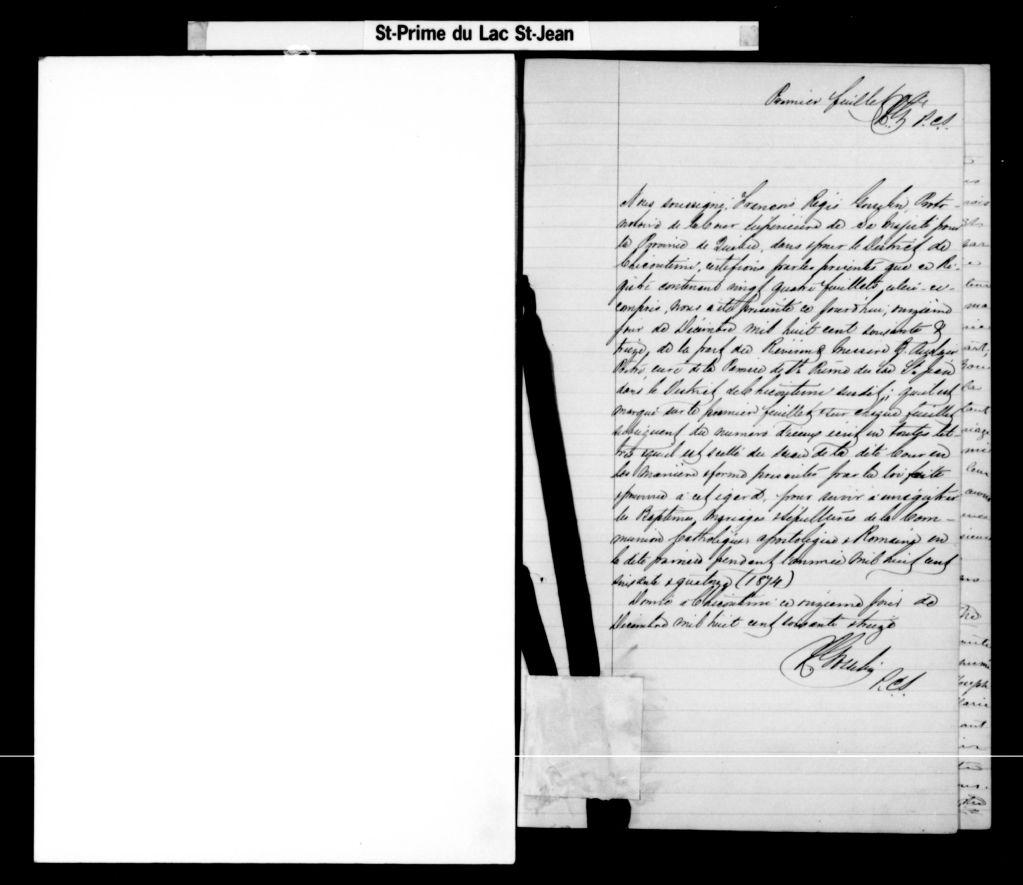 St-Prime du Lac St-Jean
Premier feuillet
P.C.S.
Nous soussigné, François Régis Gosselin, Proto-
notaire de la Cour Supérieure de Sa Majesté pour
la Province de Québec, dans & pour le District de
Chicoutimi, certifions par les présentes que ce Ré-
gistre contenant vingt quatre feuillets, celui-ci
compris, nous a été présenté ce jourd'hui, onzième
jour de Décembre mil huit cent soixante &
treize, de la part du Révérend Messire
Ptre, curé de la Paroisse de St Prime du Lac St Jean
dans le District de Chicoutimi susdit; qu'il est
marqué sur le premier feuillet & sur chaque feuillet
subséquent du numéro d'iceux écrit en toutes let-
tres & qu'il est scellé du sceau de la dite Cour en
la manière & forme prescrites par la loi faite
& pourvue à cet égard, pour servir à enrégistrer
les Baptêmes, Mariages & Sépultures de la Com-
munion Catholique, apostolique & Romaine en
la dite paroisse pendant l'année mil huit cent
soixante & quatorze (1874)
Donné à Chicoutimi ce onzième jour de
Décembre mil huit cent soixante & treize
Gosselin
P.C.S.